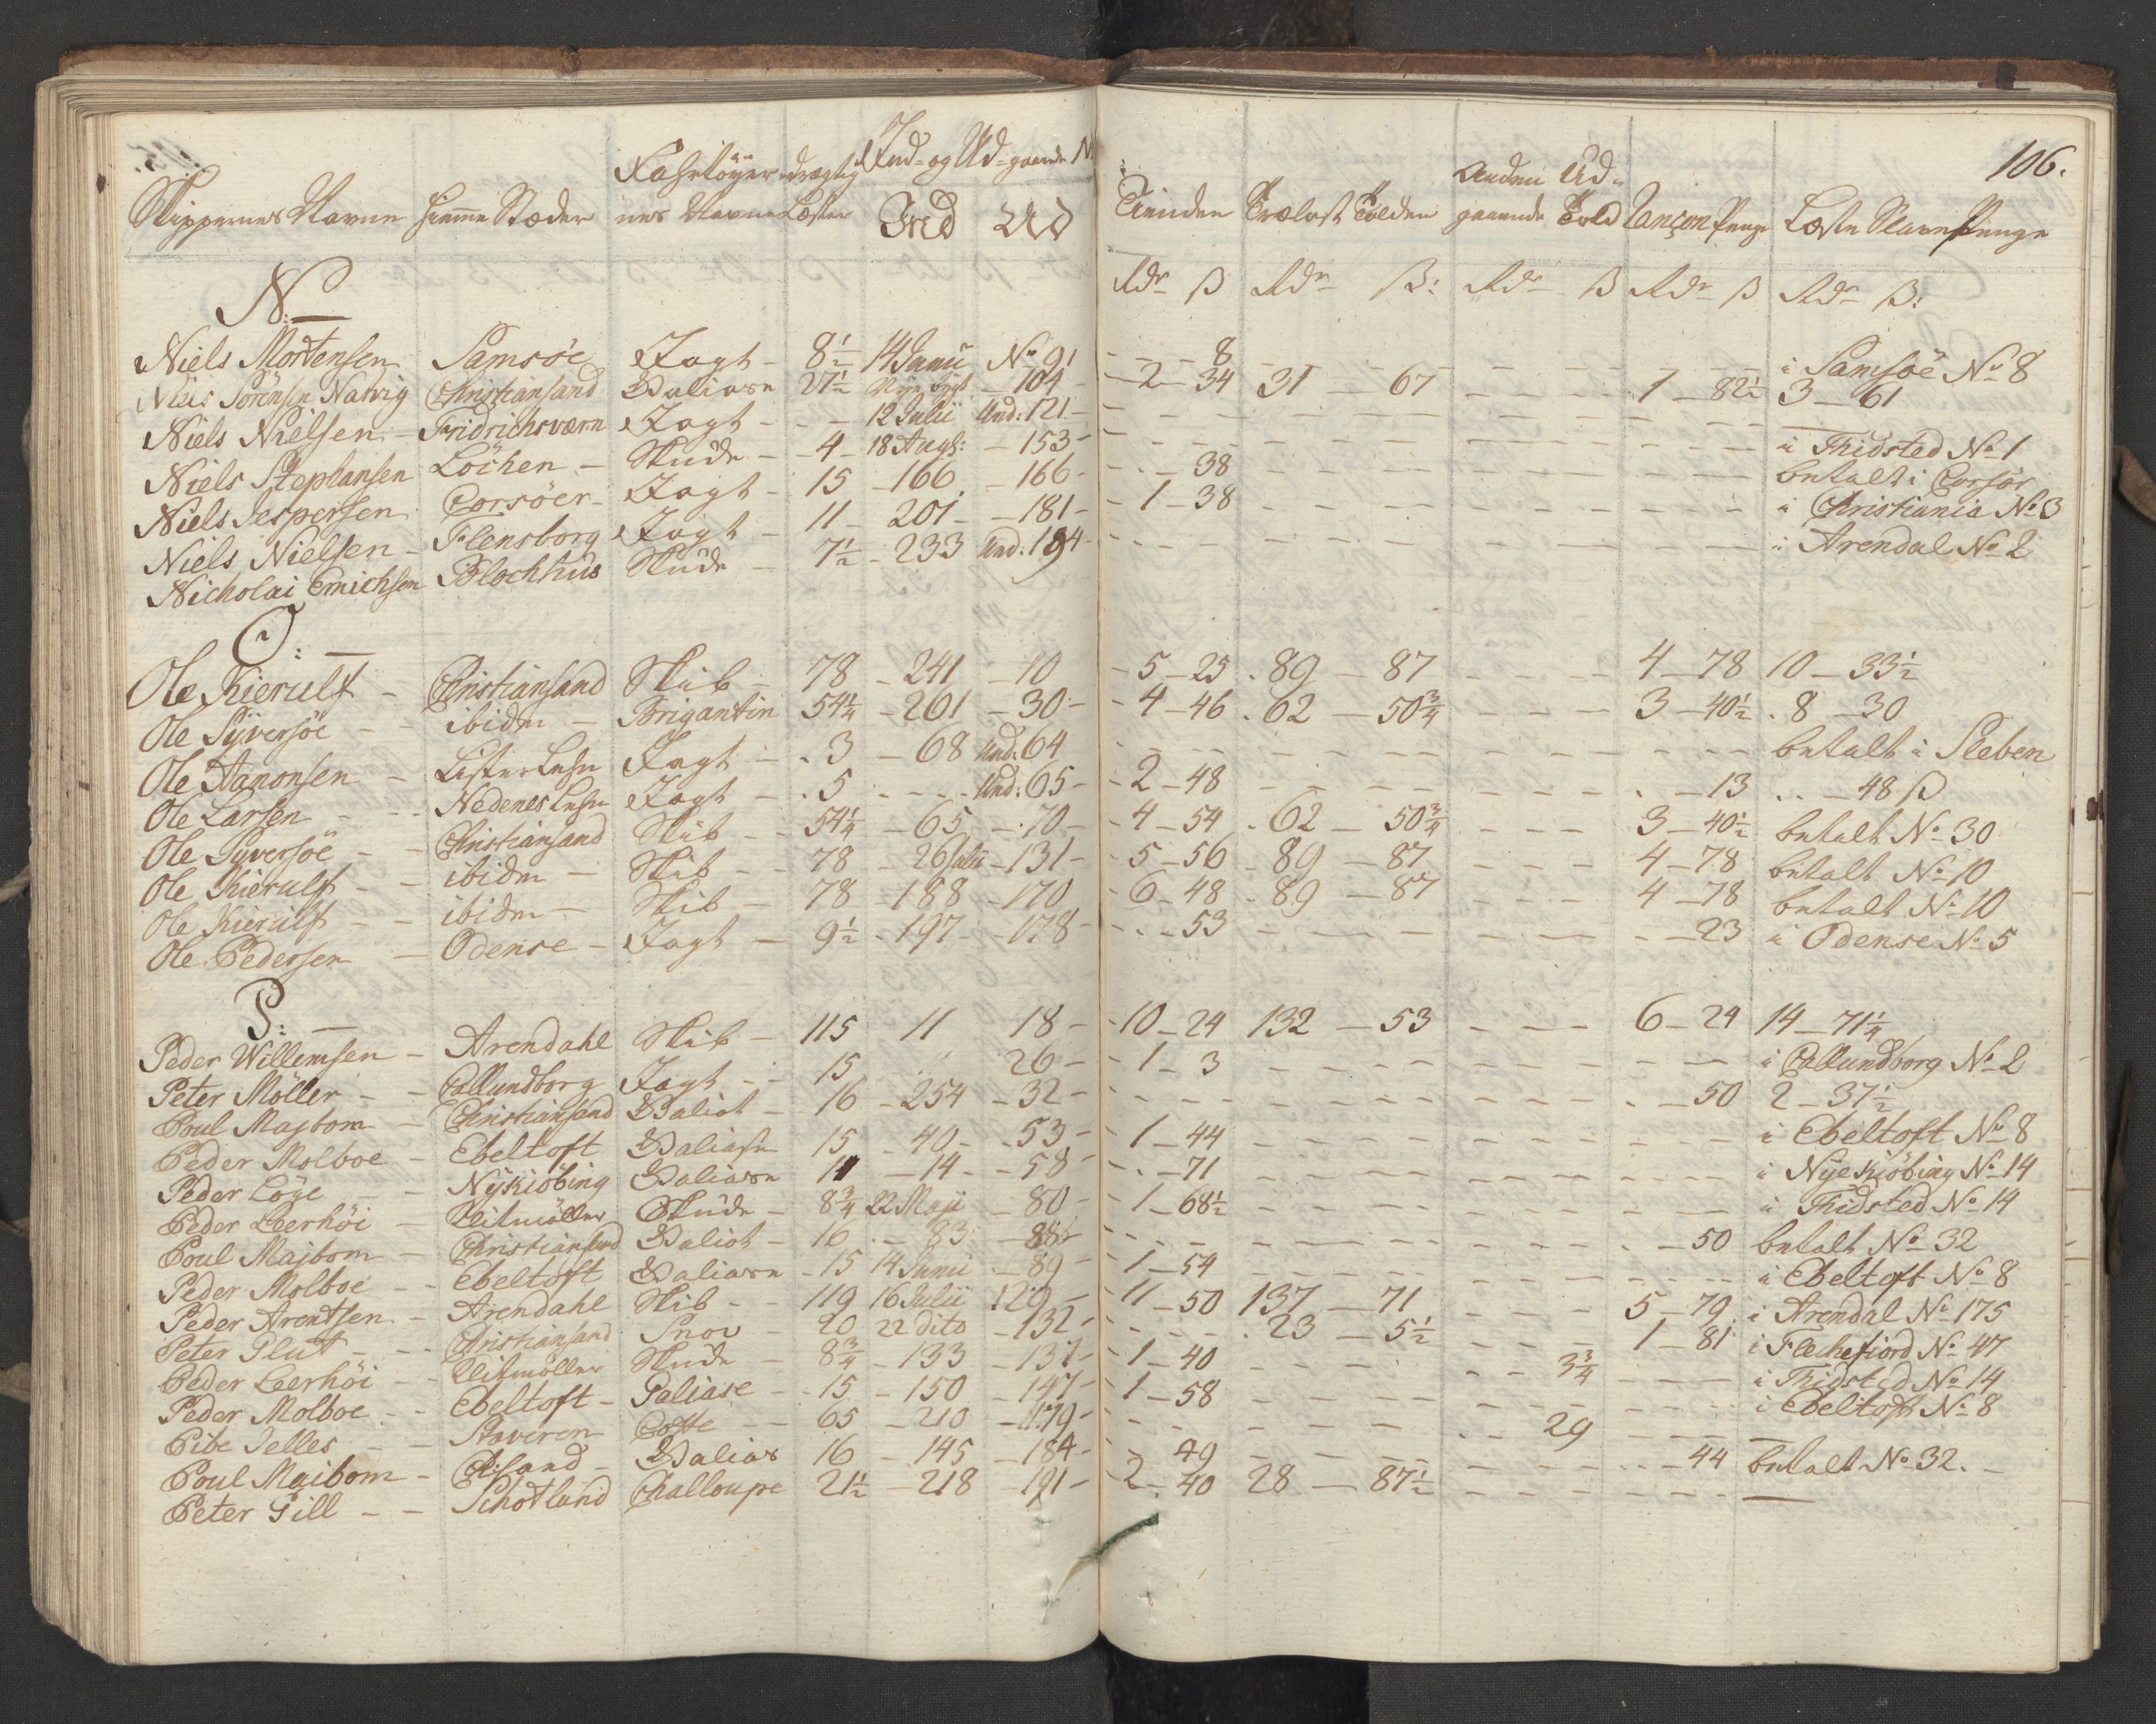 106.
Fahrtöyer- drægtig Ind- og Ud-gaaende N
Skippernes Navne Hiemme Stæder nes Navne Læster Ind Ud
Anden Ud-
Tienden Trælast Tolden gaaende Told Rançon Penge Læste Slave Penge
Rdr ß Rdr ß: Rdr ß Rdr ß Rdr ß:
N: —
Niels Mortensen Samsöe Jagt - 8½ 14 Junii No 91 - - - 8 - - - i Samsöe No 8
Niels Sörensen Narvig Christiansand Galiase 27½ Nye bygt - 104 - 2 - 34 31 - 67 - - - 1 - 82½ 3 - 61
Niels Nielsen - Fridrichsværn Jagt - - - 12 Julii Und: 121 - - - - —
Niels Stephansen Löchen - Skude - - 4 - 18 Augs: - 153 - - - - i Thidsted No 1
Niels Jespersen Corsöer - Jagt - 15 - 166 - 166 - - - 38 - - - betalt i Corsör
Niels Nielsen - Flensborg Jagt - 11 - 201 - - 181 - - 1 - 38 - - - i Christiania No 3
Nicholai Emichsen Blochhus Skude - 7½ - 233 Und: 194 - - - - i Arendal No 2
O: —
Ole Kierulf - Christiansand Skib - 78 - 241 - 10 - 5 - 25 . 89 - 87 - - - 4 - 78 10 - 33½
Ole Syversöe - - ibidm - Brigantin 54¼ - 261 - 30 - - 4 - 46 . 62 - 50¾ - - - 3 - 40½ . 8 - 30
Ole Aanonsen - Lister Lehn Jagt - . 3 - 68 Und: 64 - - - - betalt i Sleben
Ole Larsen - - - Nedenes Lehn Jagt - . 5 - - - Und: 65 - - 2 - 48 - - - . - 13 . . - 48 ß
Ole Syversöe - - Christiansand Skib - - 54¼ - 65 - 70 - - 4 - 54 . 62 - 50¾ - - - 3 - 40½ betalt No 30
Ole Kierulf - - ibidm - Skib - - 78 - 26 Julii - 131 - - 5 - 56 - 89 - 87 - - - 4 - 78 betalt No 10
Ole Kierulf - - ibidm - Skib - 78 - 188 - 170 6 - 48 - 89 - 87 - - - 4 - 78 betalt No 10
Ole Pedersen - Odense - Jagt - 9½ - 197 - 178 - - - - 53 - - - - 23 i Odense No 5
P: —
Peder Willemsen - Arendahl Skib - 115 11 18 - - 10 - 24 132 - 53 - - - 6 - 24 14 - 71¼
Peter Möller - - Callundborg Jagt - - 15 26 - - 1 - 3 - - - i Callundborg No 2
Poul Majbom - Christiansand Galiot - 16 - 254 - 32 - - - - . - 50 2 - 37½
Peder Molboe - Ebeltoft Galiase 15 - 40 - - 53 - - 1 - 44 - - - i Ebeltoft No 8
Peder Löye - - Nykiöbing Galiase 11 - 14 - - 58 - - - - 71 - - - i Nyekiöbing No 14
Peder Leerhöi - Klitmöller Skude - 8¾ 22 Maji - 80 - - 1 - 68½ - - - i Thidsted No 14
Poul Majbom - Christiansand Galiot - 16 . - 83 - 88 - - - - . - 50 betalt No 32
Peder Molboe - - Ebeltoft Galiase - 15 14 Junii - 89 - - 1 - 54 - - - i Ebeltoft No 8
Peder Arentsen - Arendahl Skib - - 119 16 Julii 129 - - 11 - 50 137 - 71 - - - 5 - 79 . i Arendal No 175
Peter Plut - - Christiansand Snou - 20 22 dito - 132 - - - - . 23 - 5½ - - - 1 - 81 i Flechefiord No 47
Peder Leerhöi - - Klitmöller Skude - 8¾ - 133 - 137 - - 1 - 40 - - - 3¾ - - i Thidsted No 14
Peder Molboe - - Ebeltoft - Galiase - - 15 - 150 - 147 - - 1 - 58 - - - i Ebeltoft No 8
Pibe Jelles - - Staveren Coffe - - 65 - 210 - 179 - - - - - - 29 - - —
Poul Maibom - Chsand - Galias 16 - 145 - 184 - - 49 - - - - 44 betalt No 32. -
Peter Gill - - Schotland Challoupe 21½ - 218 - 191 - 2 - 40 28 - 87½ - - - —